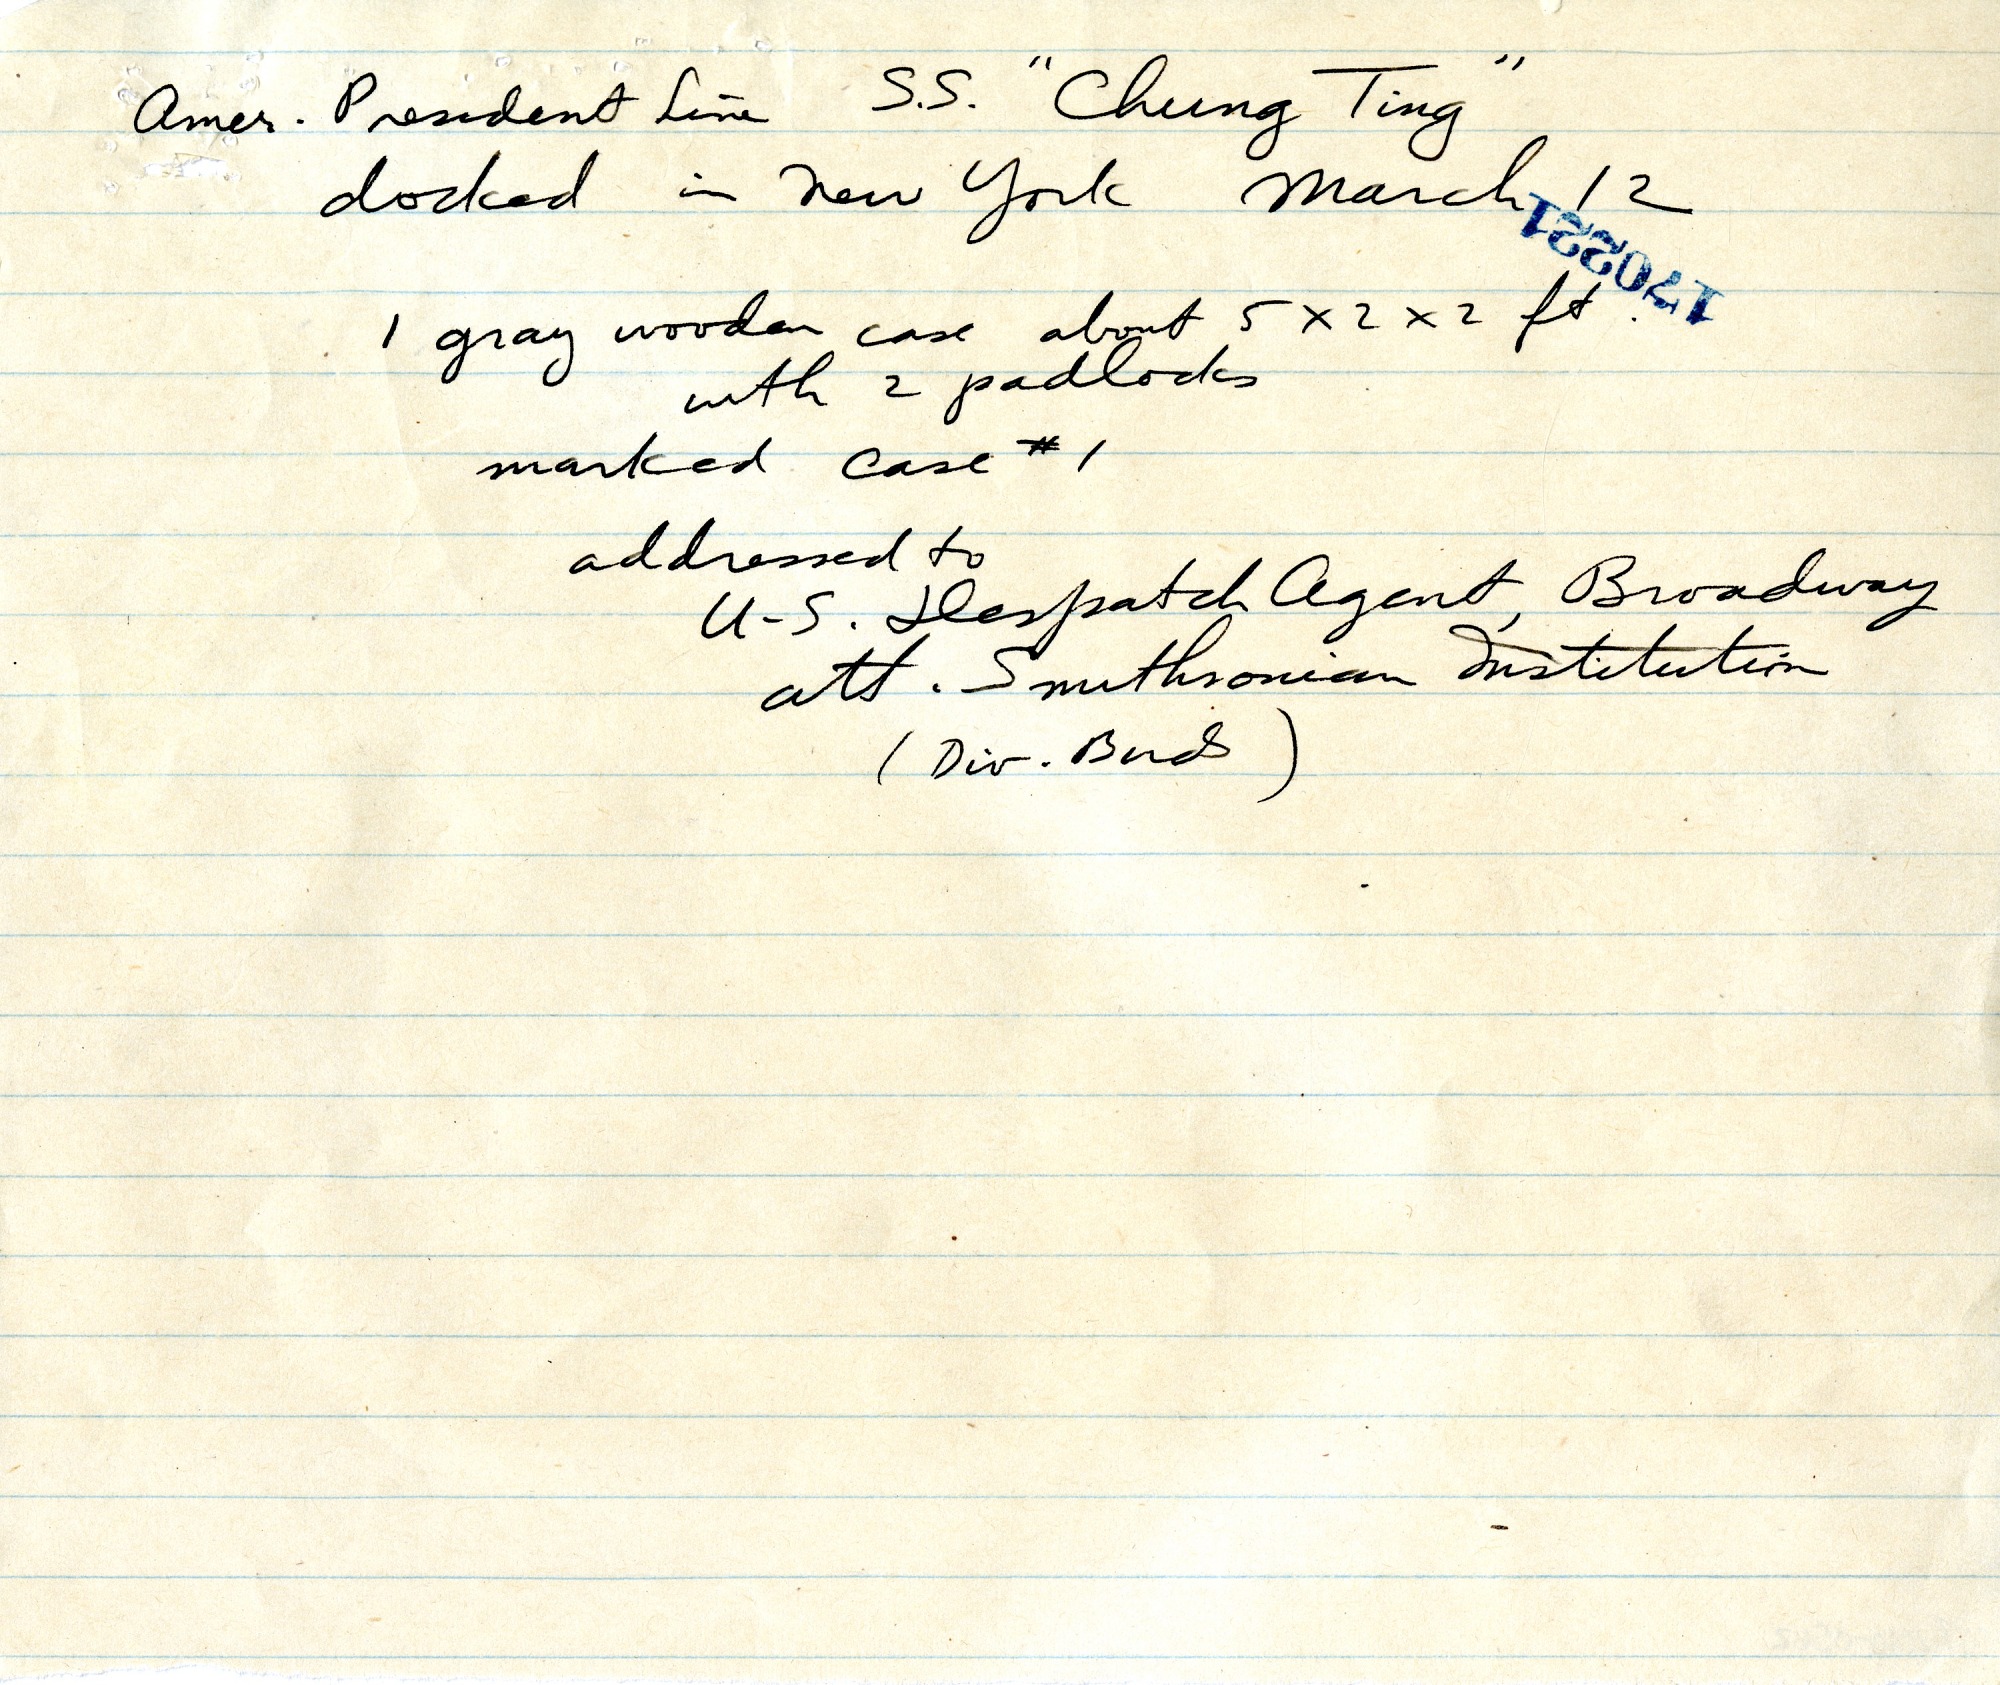 Amer. President Line S.S. "Chung Ting"
docked in New York March 12
170221
1 gray wooden case about 5 x 2 x 2 ft.
with 2 padlocks
marked case #1
addressed to
U.S. Despatch Agent, Broadway
att. Smithsonian Institution
(Div. Birds)